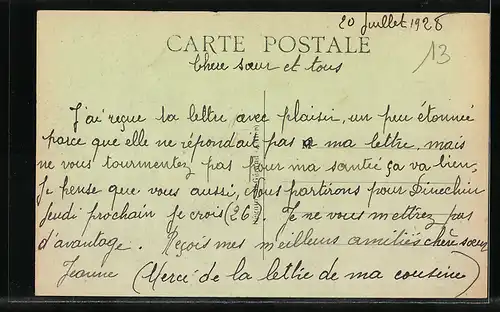 20 Juillet 1928
CARTE POSTALE
13
Chère sœur et tous
J'ai reçue ta lettre avec plaisir, un peu étonnée
parce que elle ne répondait pas a ma lettre, mais
ne vous tourmentez pas pour ma santé ça va bien,
Je pense que vous aussi, nous partirons pour Dinechin
Jeudi prochain je crois (26). Je ne vous mettrez pas
d'avantage. Reçois mes meilleurs amitiés chère sœur
Jeanne (Merci de la lettre de ma cousine)